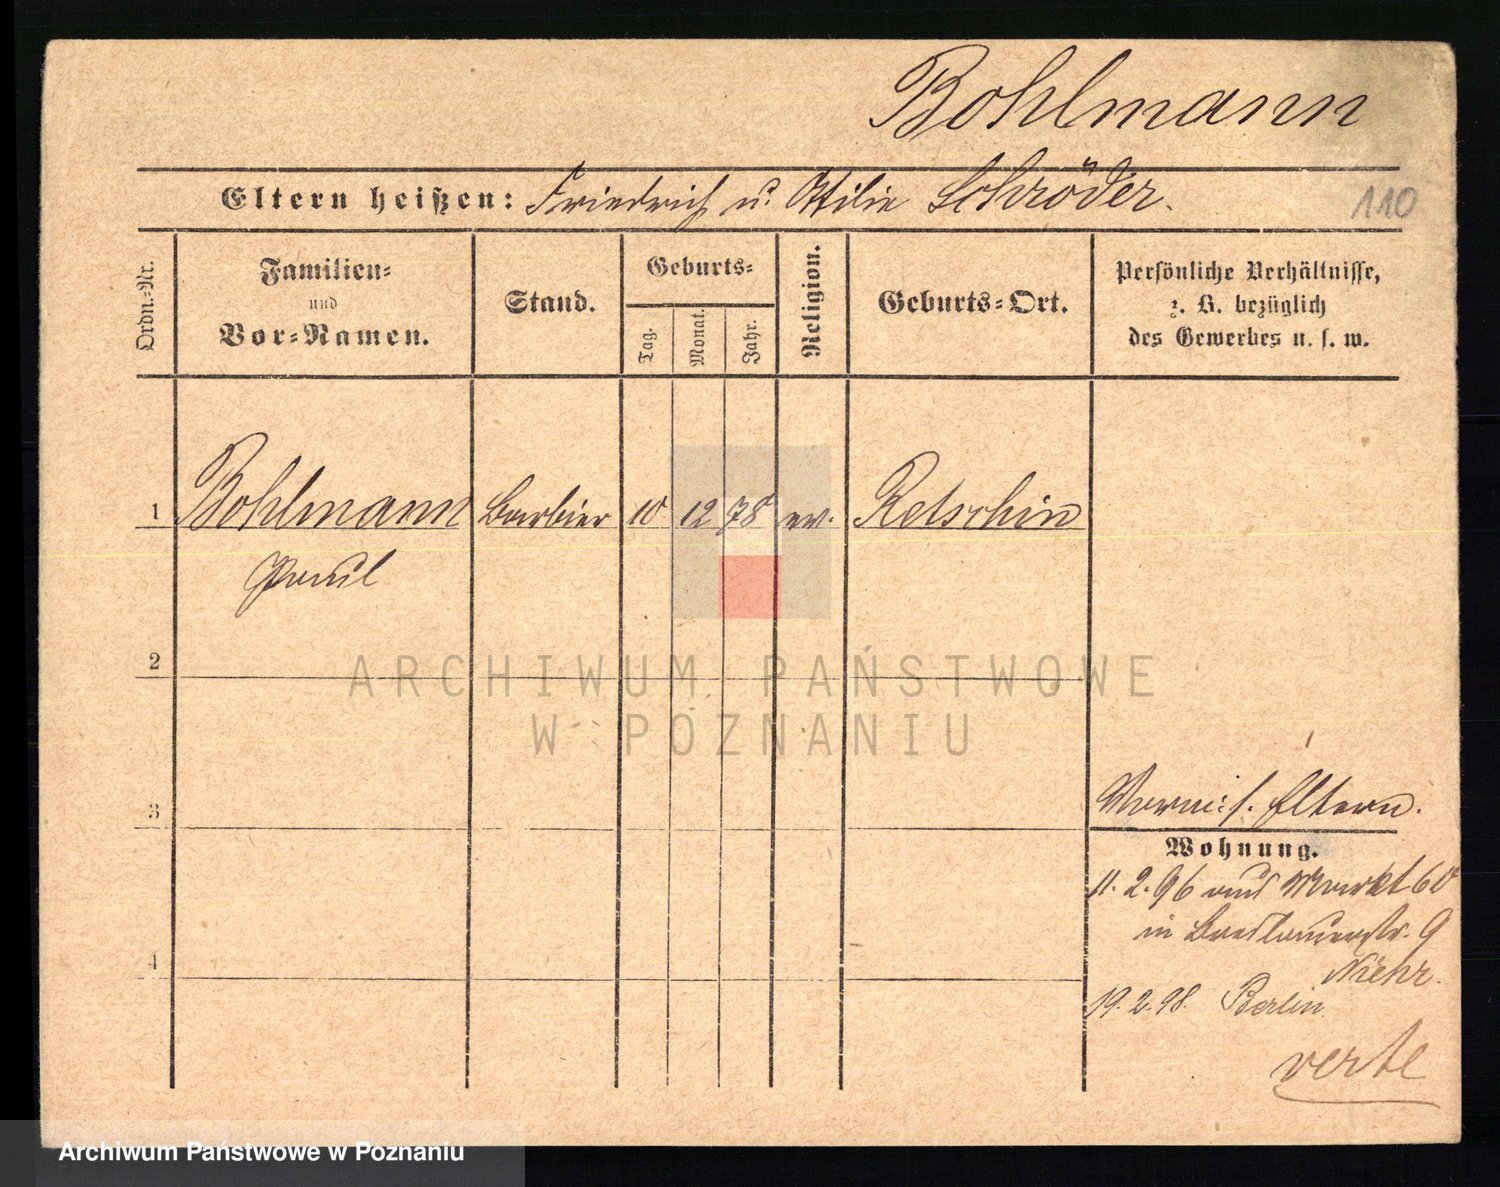 Bohlmann
Eltern heißen: Friedrich u. Ottilie Schröder.
110
Ordn.-Nr.
Familien-
und
Vor-Namen.
Stand.
Geburts-
Tag.
Monat.
Jahr.
Religion.
Geburts-Ort.
Persönliche Verhältnisse,
z. B. bezüglich
des Gewerbes u. s. w.
1 Bohlmann Barbier 10 12 78 ev. Retschin
Paul
2
ARCHIWUM PAŃSTWOWE
W POZNANIU
3
s. Eltern.
Wohnung.
11. 2. 96 aus Markt 60
in Breslauerstr. 9
4
19. 2. 98. Berlin
verte
Archiwum Państwowe w Poznaniu